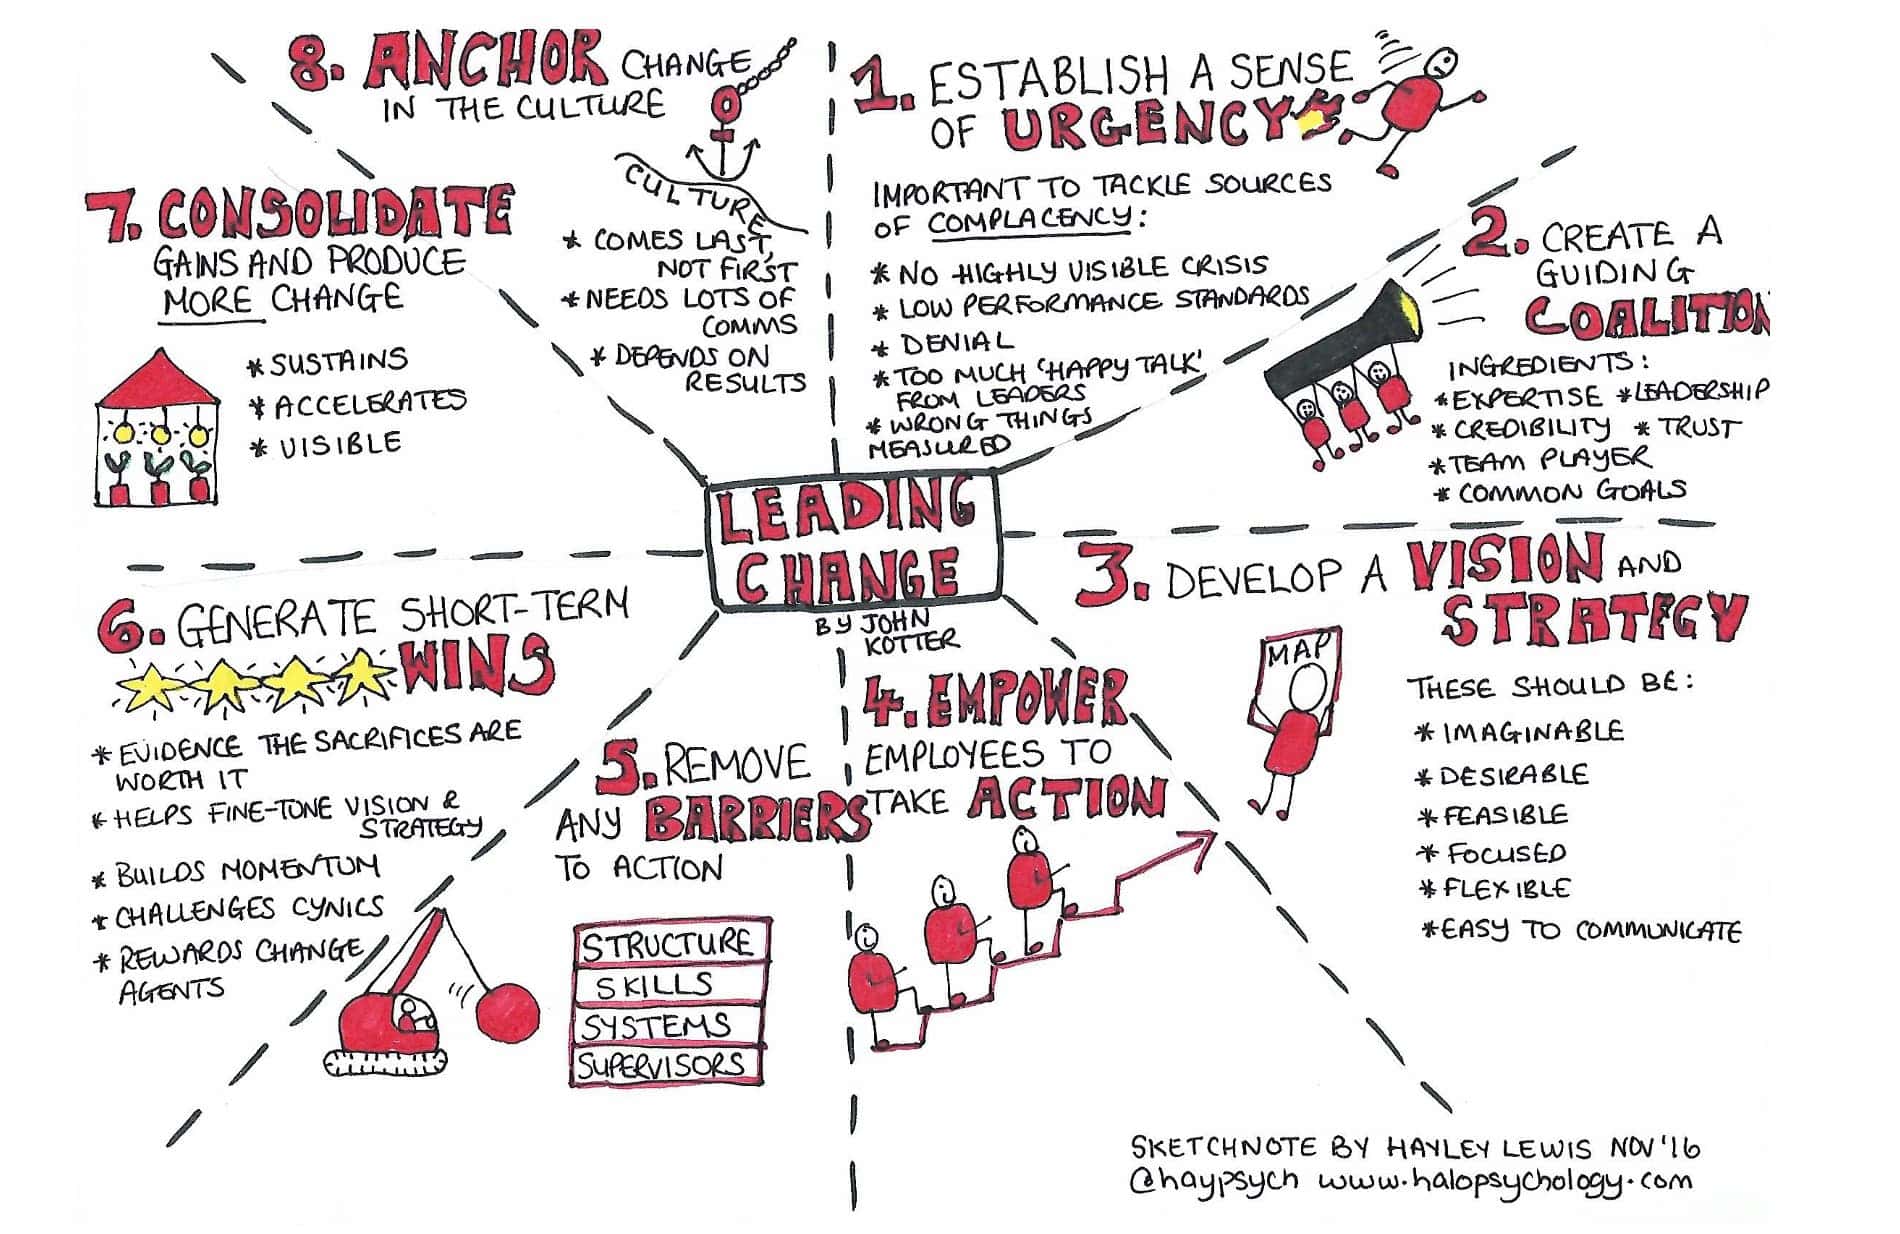 LEADING
CHANGE
BY JOHN
KOTTER
1. ESTABLISH A SENSE
OF URGENCY
IMPORTANT TO TACKLE SOURCES
OF COMPLACENCY:
* NO HIGHLY VISIBLE CRISIS
* LOW PERFORMANCE STANDARDS
* DENIAL
* TOO MUCH 'HAPPY TALK'
FROM LEADERS
* WRONG THINGS
MEASURED
2. CREATE A
GUIDING
COALITION
INGREDIENTS:
* EXPERTISE * LEADERSHIP
* CREDIBILITY * TRUST
* TEAM PLAYER
* COMMON GOALS
3. DEVELOP A VISION AND
STRATEGY
MAP
THESE SHOULD BE:
* IMAGINABLE
* DESIRABLE
* FEASIBLE
* FOCUSED
* FLEXIBLE
* EASY TO COMMUNICATE
4. EMPOWER
EMPLOYEES TO
TAKE ACTION
5. REMOVE
ANY BARRIERS
TO ACTION
STRUCTURE
SKILLS
SYSTEMS
SUPERVISORS
6. GENERATE SHORT-TERM
WINS
* EVIDENCE THE SACRIFICES ARE
WORTH IT
* HELPS FINE-TONE VISION &
STRATEGY
* BUILDS MOMENTUM
* CHALLENGES CYNICS
* REWARDS CHANGE
AGENTS
7. CONSOLIDATE
GAINS AND PRODUCE
MORE CHANGE
* SUSTAINS
* ACCELERATES
* VISIBLE
8. ANCHOR CHANGE
IN THE CULTURE
CULTURE
* COMES LAST,
NOT FIRST
* NEEDS LOTS OF
COMMS
* DEPENDS ON
RESULTS
SKETCHNOTE BY HAYLEY LEWIS NOV '16
@haypsych www.halopsychology.com